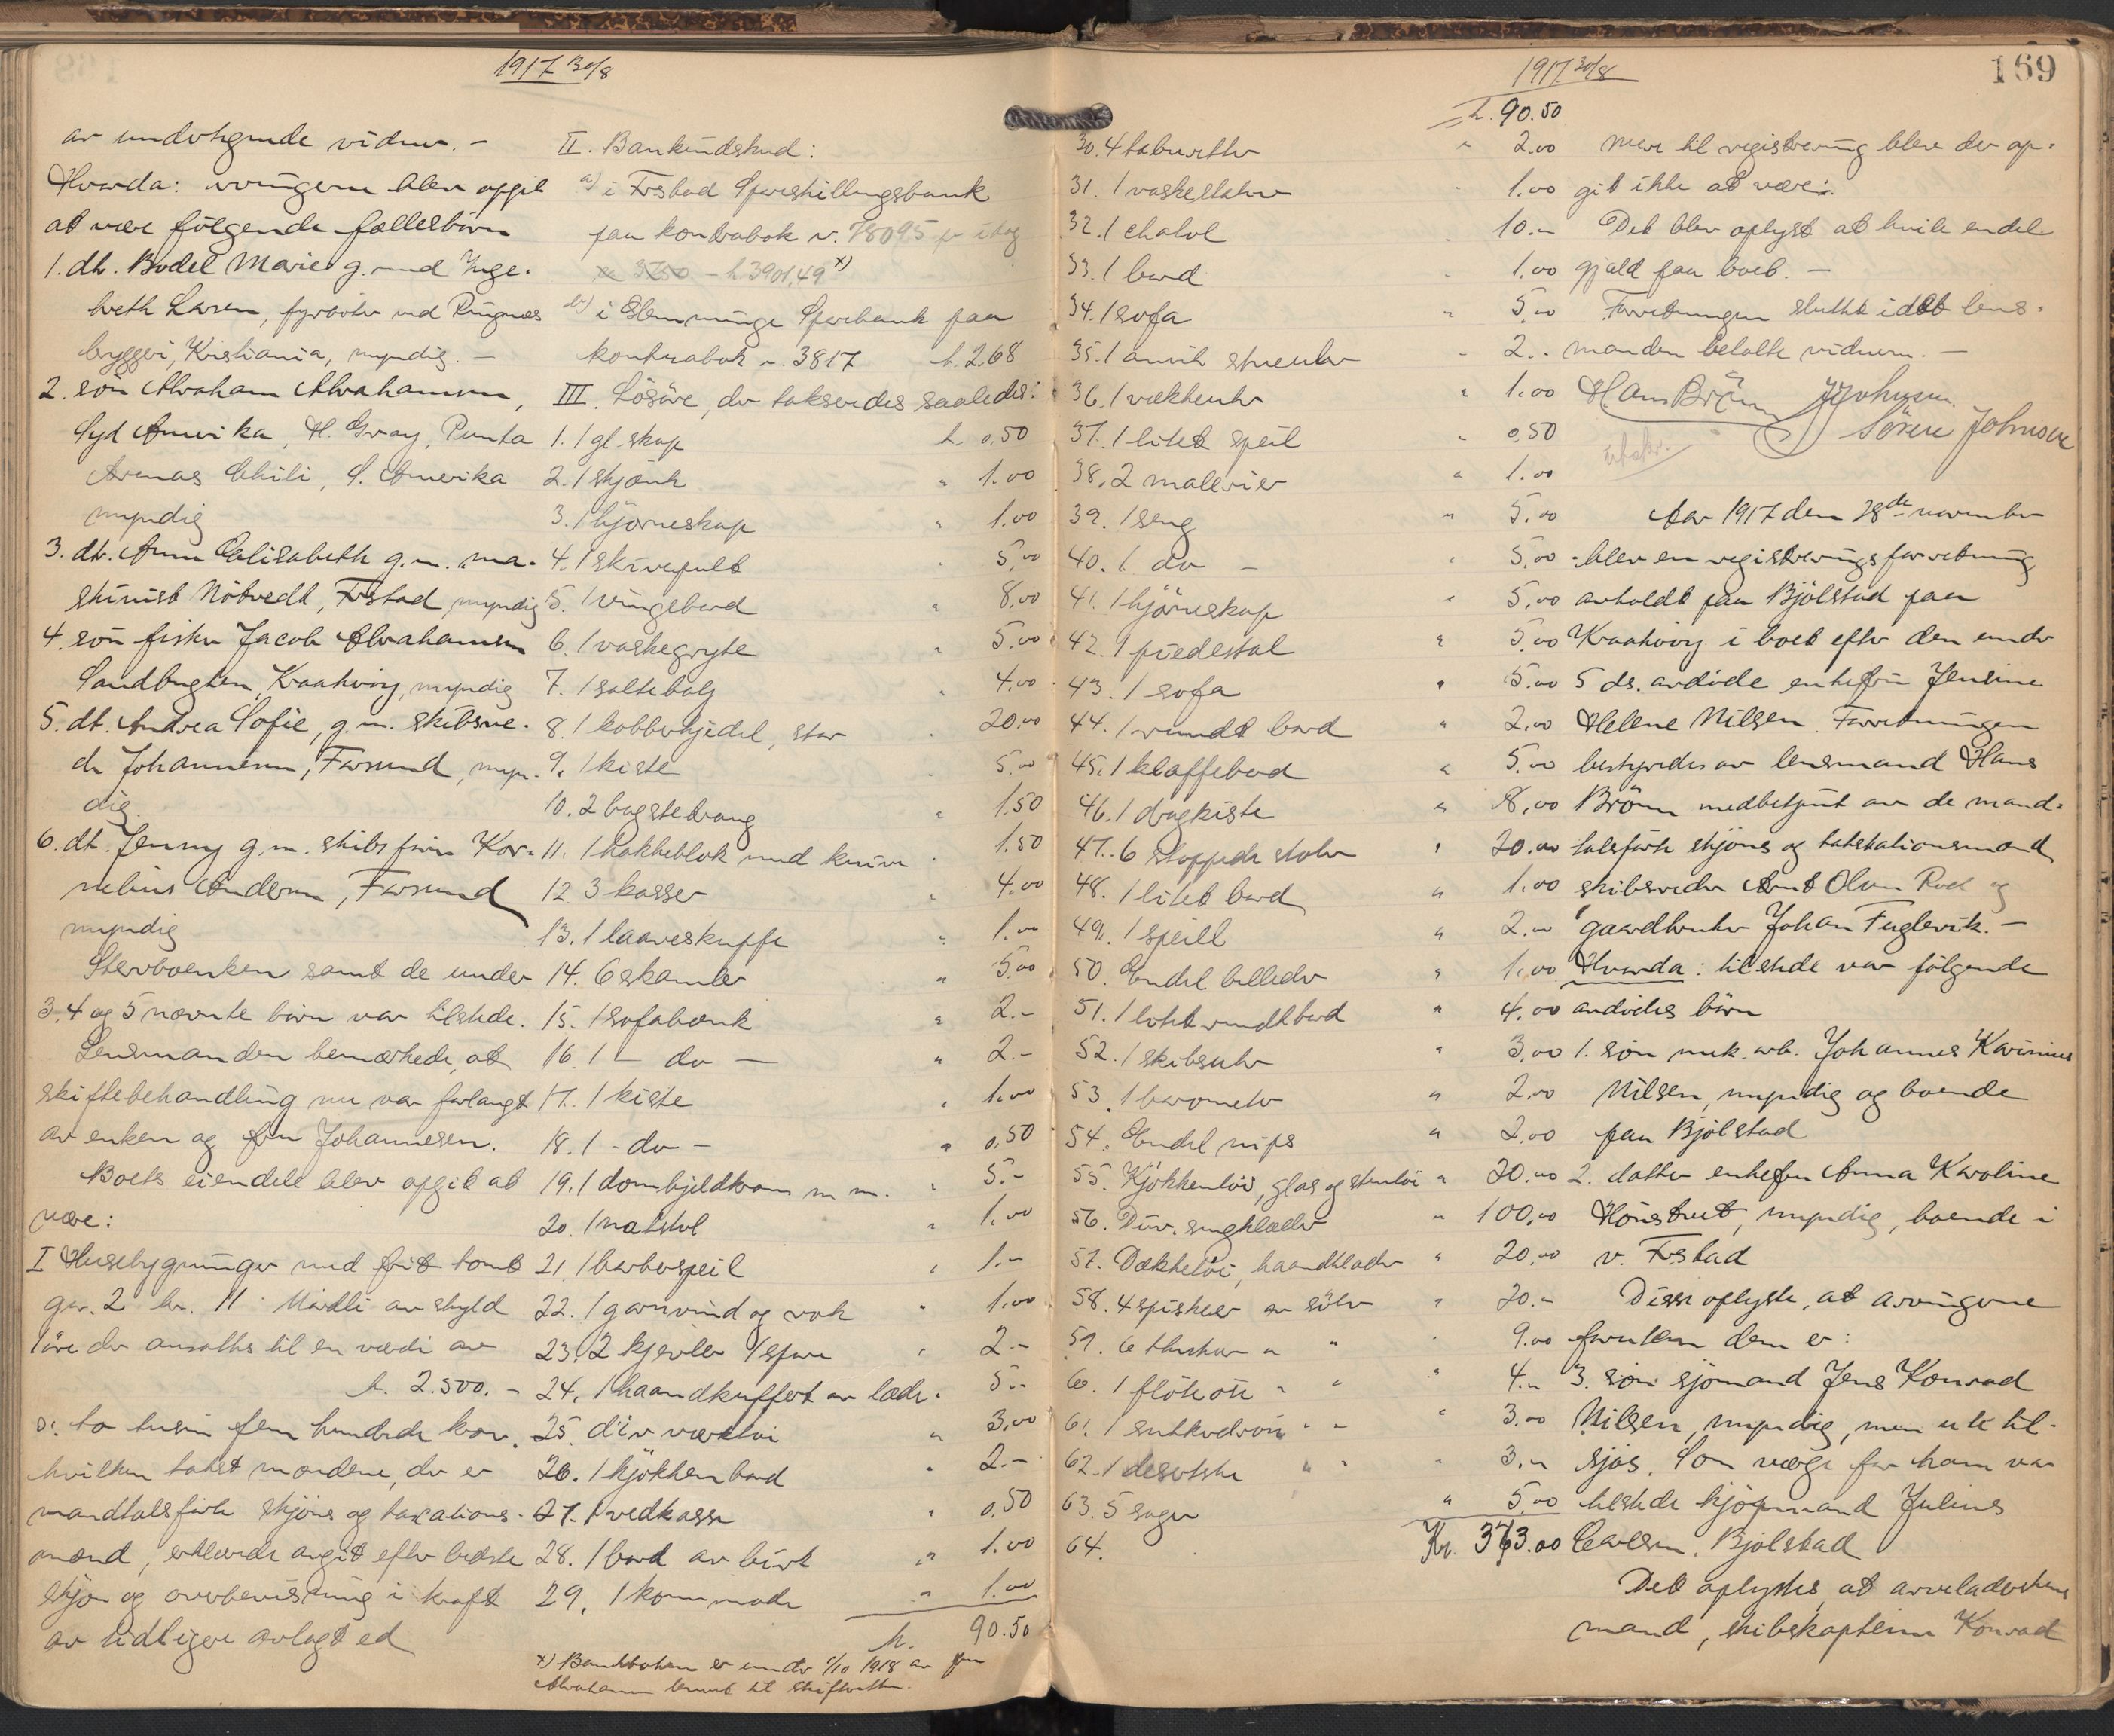 1917 30/8
av undertegnede vidner. -
Hvorda: arvingerne blev opgit
at være følgende fællesbørn
1. dtr. Bodel Marie g. med Inge-
breth Larsen, fyrbøter ved Ringnæs
bryggeri, Kristiania, myndig. -
2. søn Abraham Abrahamsen,
Syd Amerika, H. Gray, Punta
Arenas Chili, S. Amerika
myndig
3. dtr. Anne Elisabeth g.m. ma-
skinist Nøtvedt, Frstad, myndig
4. søn fisker Jacob Abrahamsen
Sandbugten, Kraakerøy, myndig
5. dt. Andrea Sofie, g.m. skibsre-
der Johannesen, Farsund, myn-
dig
6. dt. Jenny g.m. skibsfører Kor-
nelius Andersen, Farsund
myndig
Stervboenken samt de under
3, 4 og 5 nævnte børn var tilstede.
Lensmanden bemærkede, at
skiftebehandling nu var forlangt
av enken og fru Johannesen.
Boets eiendele blev opgit at
være:
I Husebygninger med frit tomt
gnr. 2 br. 11 av skyld
1 øre der ansattes til en værdi av
kr. 2.500. -
o: to tusin fem hundrede kron.
hvilken takst mændene, der er
mandtalsførte skjøns og taxations-
mænd, erklærede avgit efter bedste
skjøn og overbevisning i kraft
av tidligere avlagt ed
II. Bankindskud:
a) i Frstad Sparskillingsbank
paa kontrabok nr. 78095 pr idag
kr. 3901,49 x)
b) i Glemminge Sparebank paa
kontrabok nr. 3817 kr. 2.68
III. Løsøre, der takseredes saaledes:
1. 1 gl. skap kr. 0,50
2. 1 skjænk " 1.00
3. 1 hjørneskap " 1.00
4. 1 skrivepult " 5,00
5. 1 vingebord " 8,00
6. 1 vaskegryte " 5.00
7. 1 saltebalj " 4.00
8. 1 kobberkjedel, stor " 20.00
9. 1 kiste " 5,00
10. 2 bagstetraug " 1.50
11. 1 hakkeblok med kniver " 1.50
12. 3 kasser " 4.00
13. 1 laaveskuffe " 1.00
14. 6 skamler " 5,00
15. 1 sofabænk " 2.-
16. 1 - do - " 2.-
17. 1 kiste " 1.00
18. 1 - do - " 0,50
19. 1 m m. " 5.-
20. 1 natstol " 1.00
21. 1 barberspeil " 1.-
22. 1 garnvind og rok " 1.00
23. 2 kjevler 1 " 2.-
24. 1 haandkuffert av læder " 5.-
25. div værktøi " 3,00
26. 1 kjøkkenbord " 2.-
27. 1 vedkasse " 0,50
28. 1 bord av birk " 1.00
29. 1 kommode " 1.00
kr. 90.50
x) Bankboken er under 1/10 1918 av fru
Abrahamsen levert til skifteretten.
169
1917 30/8
kr. 90.50
30. 4 taburetter " 2.00
31. 1 vaskestativ 1.00
32. 1 chatol 10.-
33. 1 bord 1.00
34. 1 sofa " 5,00
35. 1 amrik stueuhr " 2.-
36. 1 vækkeuhr " 1.00
37. 1 litet speil " 0,50
38. 2 malerier " 1.00
39. 1 seng " 5,00
40. 1 do - " 5,00
41. 1 hjørneskap " 5,00
42. 1 piedestal " 5,00
43. 1 sofa " 5.00
44. 1 rundt bord " 2.00
45. 1 klaffebord " 5.00
46. 1 dragkiste " 8,00
47. 6 stoppede stoler " 20.00
48. 1 litet bord " 1.00
49. 1 speill " 2.00
50. Endel billeder " 1.00
51. 1 litet rundtbord " 4.00
52. 1 skibsuhr " 3,00
53. 1 barometer " 2.00
54. Endel nips " 2.00
55. Kjøkkentøi, glas og stentøi " 20.00
56. Div. sengklæder " 100,00
57. Dækketøi, haandklæder " 20.00
58. 4 spiskeer av sølv " 20.-
59. 6 theskeer " " 9.00
60. 1 fløteøse " " 4.-
61. 1 " " 3.00
62. 1 " " 3.-
63. 5 sager " 5,00
64.
Kr. 363.00
Mere til registrering blev der op-
git ikke at være.
Det blev oplyst at hvile endel
gjæld paa boet. -
Forretningen sluttet idet lens-
manden betalte vidnerne. -
Hans Brønn Johnsen
Søren Johnsen
utskr.
Aar 1917 den 28de november
blev en registreringsforretning
avholdt paa Bjølstad paa
Kraakerøy i boet efter den under
5 ds. avdøde enkefru Jensine
Helene Nilsen. Forretningen
bestyredes av lensmand Hans
Brønn medbetjent av de mand-
talsførte skjøns og takstationsmænd
skibsreder Arnt Olsen Rød og
gaardbruker Johan Fuglevik. -
Hvorda: tilstede var følgende
avdødes børn
1. søn mek. arb. Johannes Karinius
Nilsen, myndig og boende
paa Bjølstad
2. datter enkefru Anna Karoline
, myndig, boende i
v. Frstad
Disse oplyste, at arvingerne
foruten dem er:
3. søn sjømand Jens Konrad
Nilsen, myndig, men ute til-
sjøs. Som værge for ham var
tilstede kjøpmand Julius
Carlsen, Bjølstad
Det oplystes, at arveladerskens
mand, skibskaptein Konrad